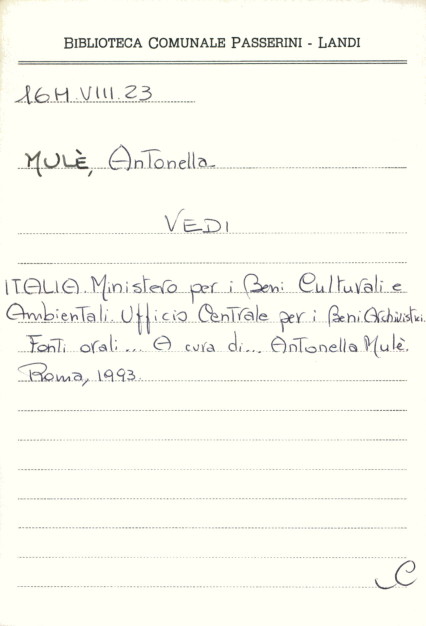 BIBLIOTECA COMUNALE PASSERINI - LANDI
16M.VIII.23
MULÈ, Antonella
VEDI
ITALIA. Ministero per i Beni Culturali e
Ambientali. Ufficio Centrale per i Beni Archivistici.
Fonti orali... A cura di... Antonella Mulè.
Roma, 1993.
C